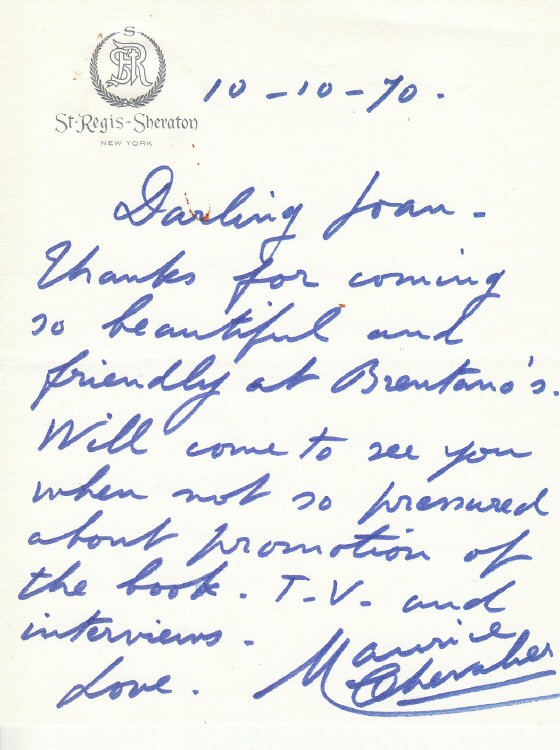 S
SR
St·Regis-Sheraton
NEW YORK
10-10-70.
Darling Joan -
Thanks for coming
so beautiful and
friendly at Brentano's.
Will come to see you
when not so pressured
about promotion of
the book. T-V- and
interviews.
Love. Maurice
Chevalier